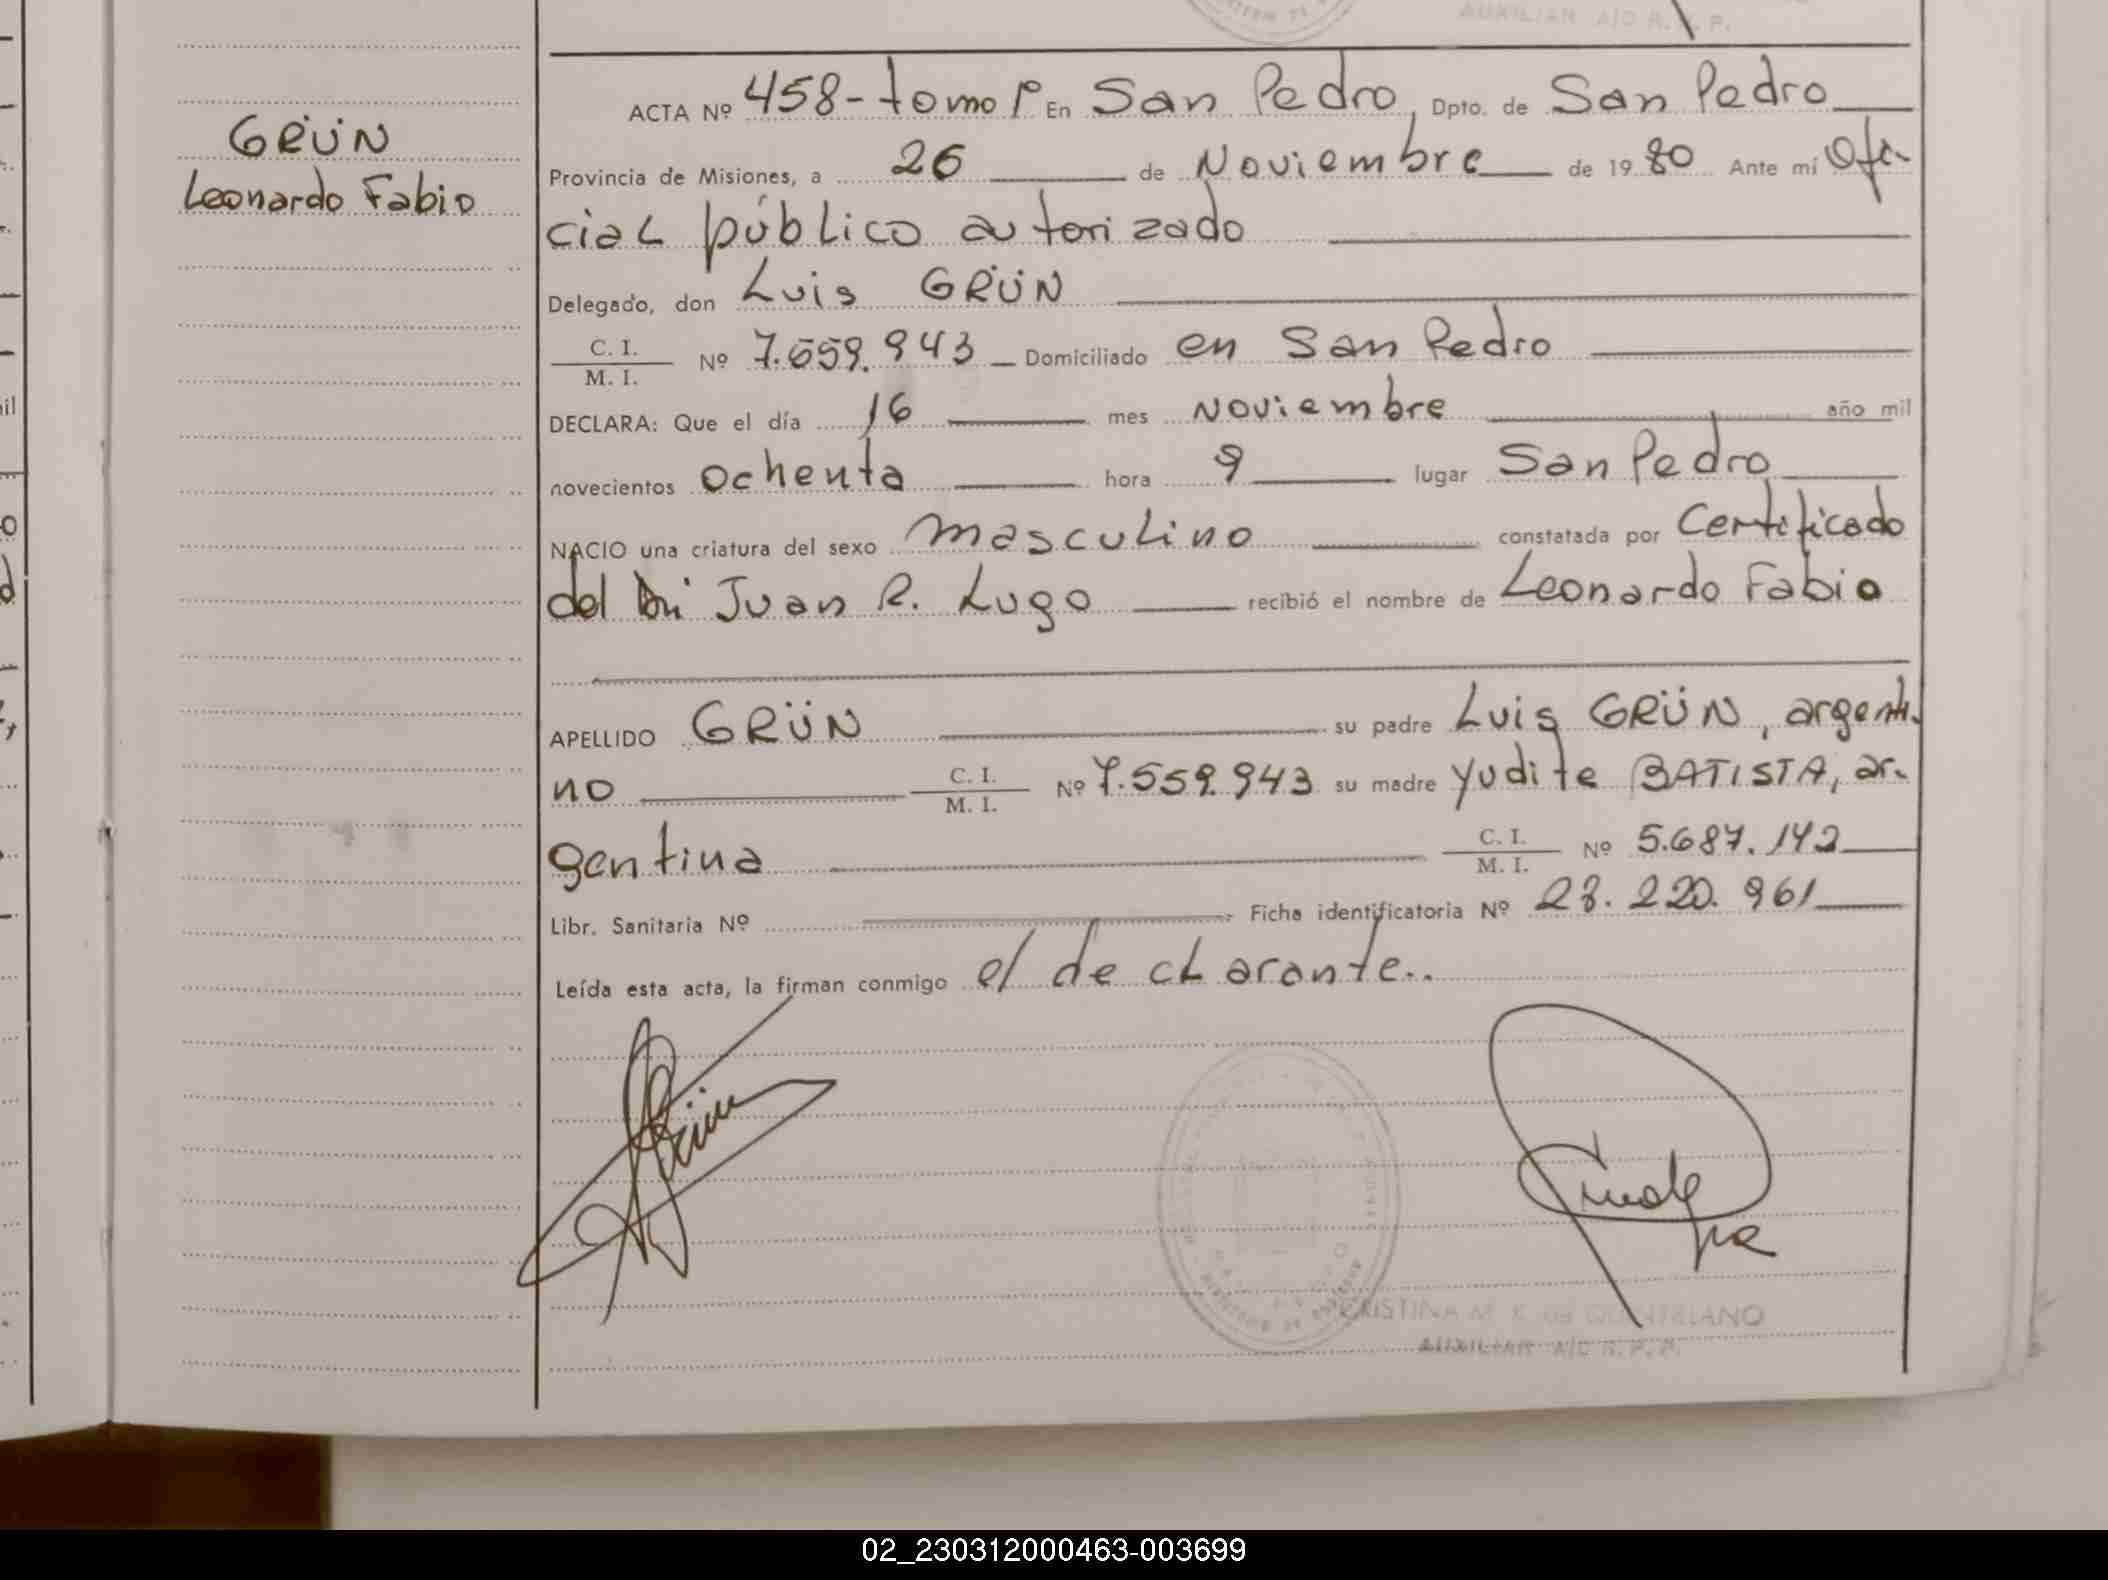 AUXILIAR A/C R. P. P.
ACTA Nº 458 - tomo 1º En San Pedro, Dpto. de San Pedro
GRÜN
Leonardo Fabio
Provincia de Misiones, a 26 de Noviembre de 1980 Ante mí Ofi-
cial público autorizado
Delegado, don Luis GRÜN
C. I.
M. I. Nº 7.559.943 Domiciliado en San Pedro
DECLARA: Que el día 16 mes Noviembre año mil
novecientos ochenta hora 9 lugar San Pedro
NACIO una criatura del sexo masculino constatada por Certificado
del Dr Juan R. Lugo recibió el nombre de Leonardo Fabio
APELLIDO GRÜN su padre Luis GRÜN, argenti-
no C. I.
M. I. Nº 7.559.943 su madre Yudite BATISTA, ar-
gentina C. I.
M. I. Nº 5.687.142
Libr. Sanitaria Nº Ficha identificatoria Nº 28.220.961
Leída esta acta, la firman conmigo el declarante..
Grün
CRISTINA M. K. de QUINTELANO
AUXILIAR A/C R. P. P.
02_230312000463-003699